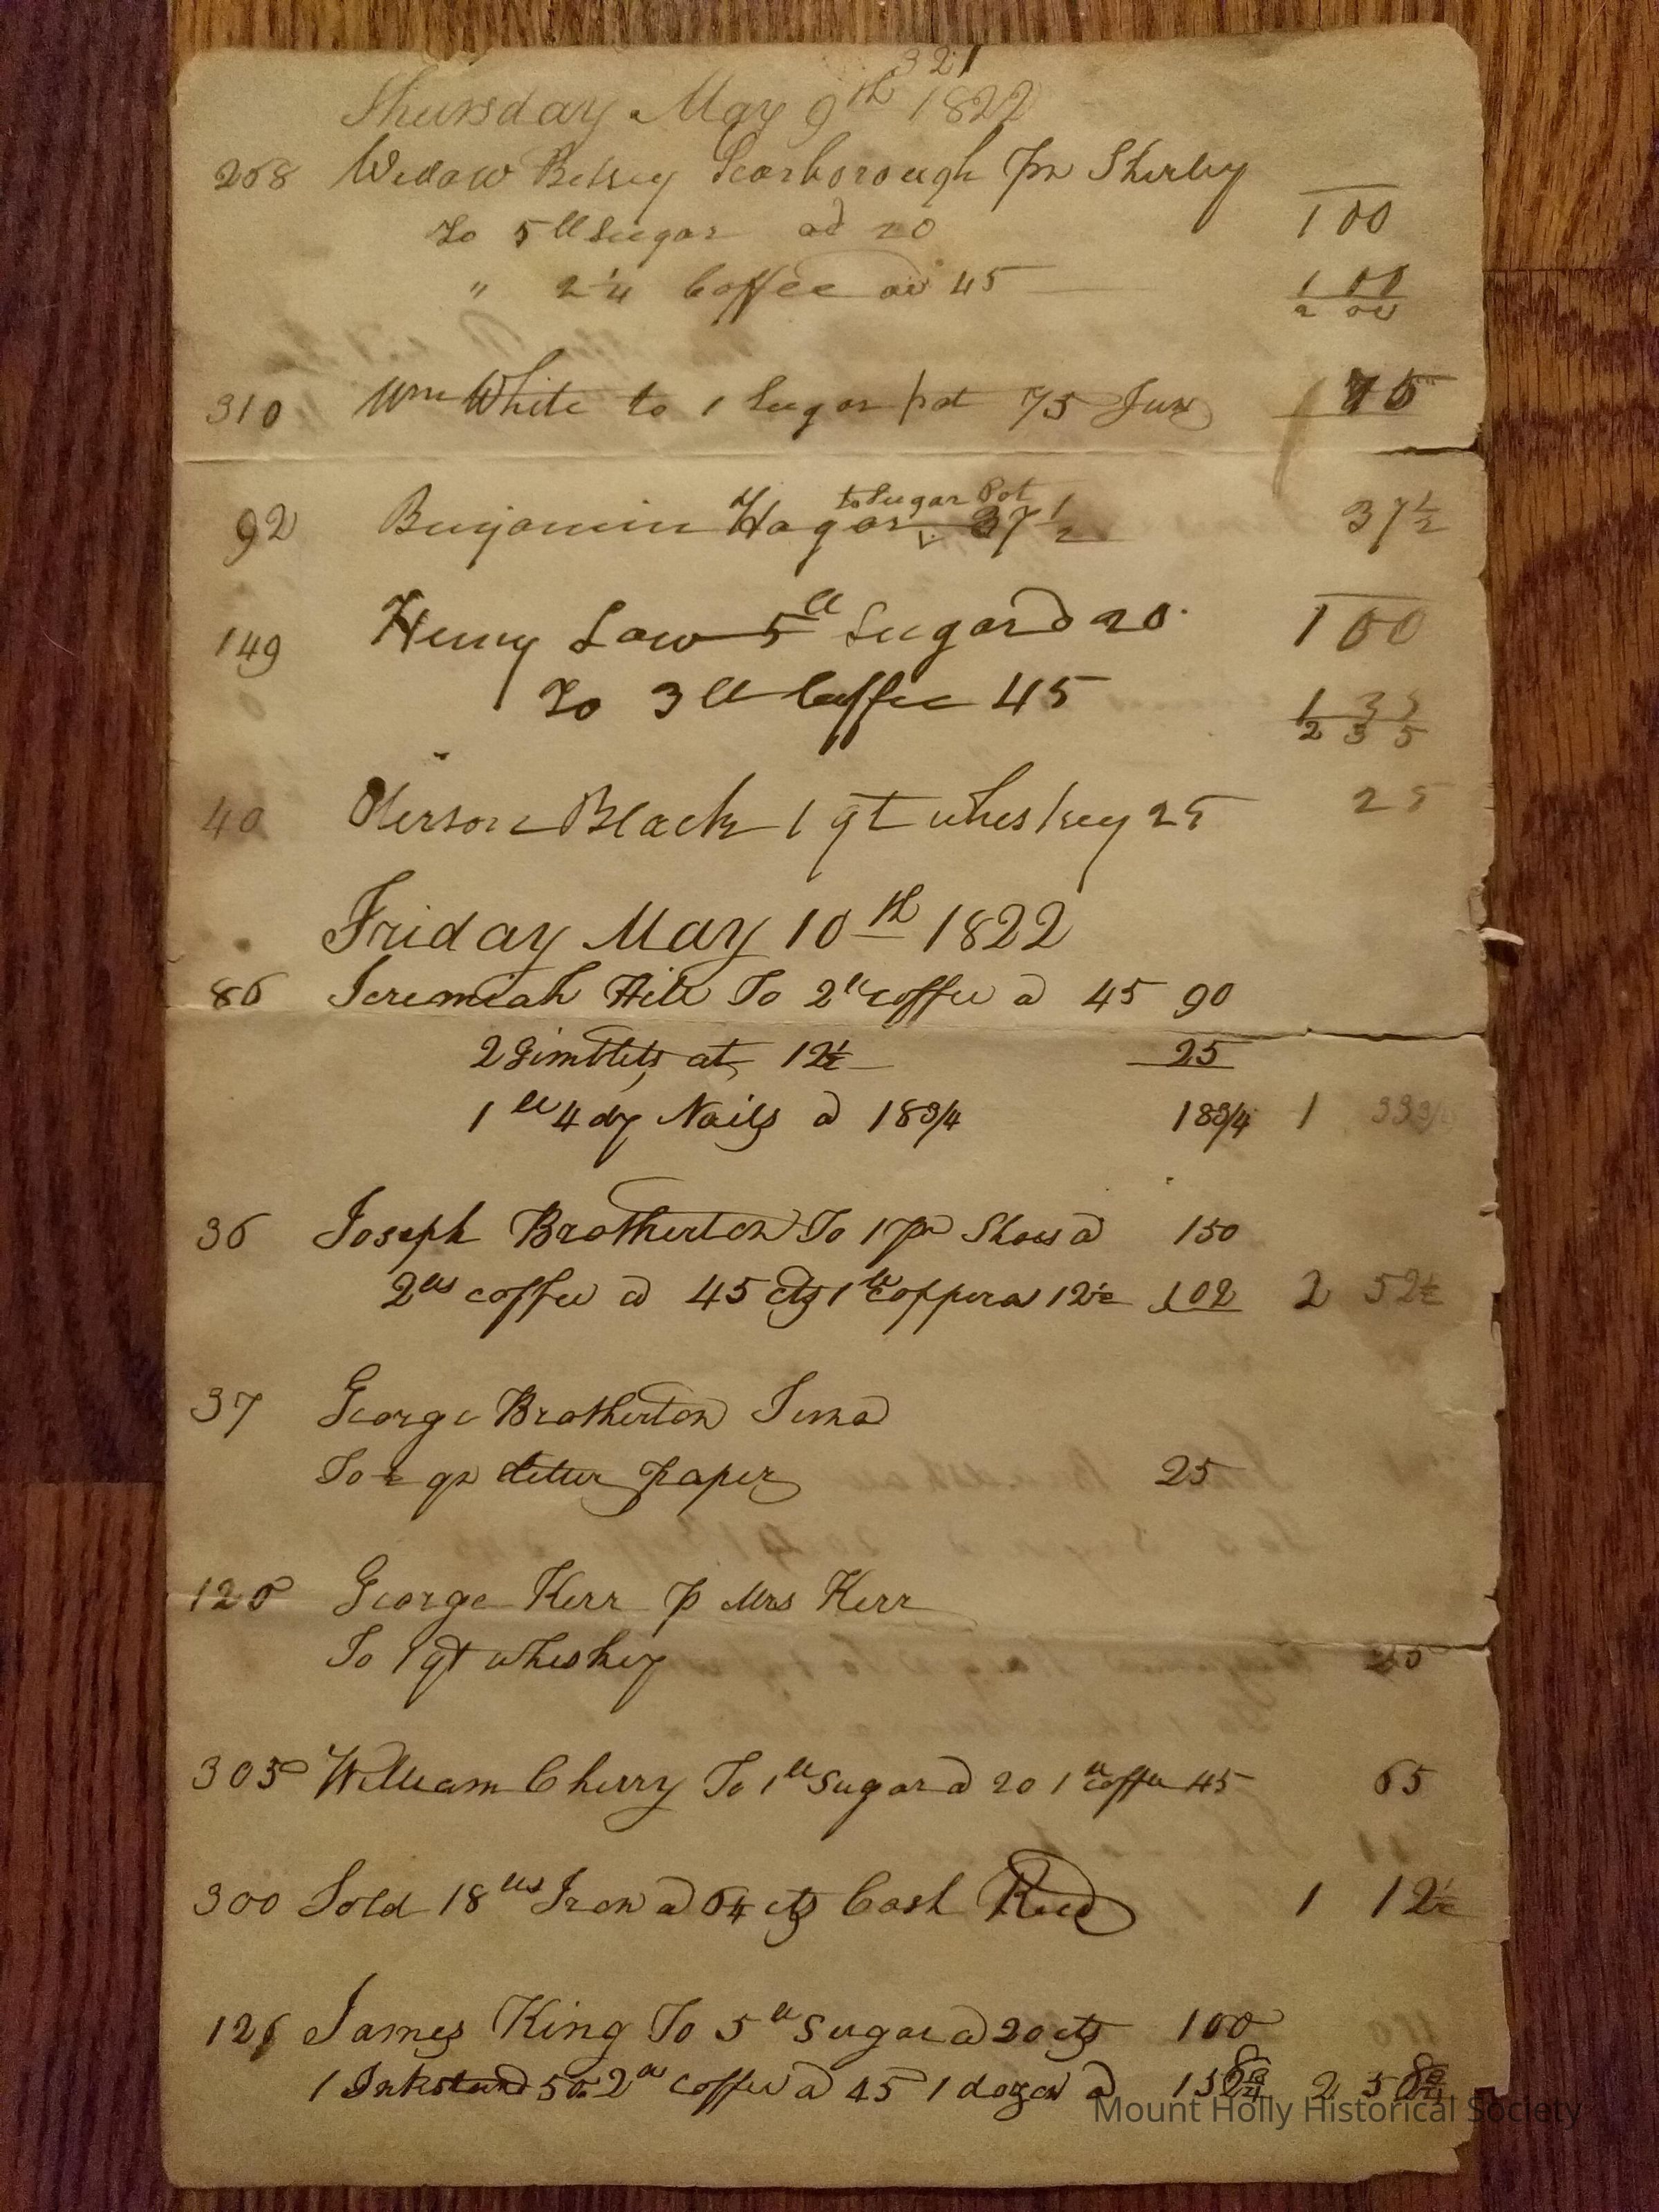 321
Thursday May 9th 1822
268 Widow Betsey Scarborough pr Shirley
To 5 ll Sugar ad 20 1 00
" 2 1/4 Coffee ad 45 1 00
2 00
310 Wm White to 1 Sugar pot 75 75
to Sugar Pot
92 Benjamin Hagar 37 1/2 37 1/2
149 Henry Law 5 ll Sugar a 20 1 00
To 3 ll Coffee 45 1 35
2 35
40 Black 1 qt whiskey 25 25
Friday May 10th 1822
86 Jeremiah Hill To 2 ll coffee a 45 90
2 Gimblets at 12 1/2 25
1 ll 4 dy Nails a 18 3/4 18 3/4 1 33 3/4
36 Joseph Brotherton To 1 pr Shoes a 150
2 lls coffee a 45 cts 1 ll copperas 12 1/2 102 2 52 1/2
37 George Brotherton
To qr letter paper 25
120 George Kerr p Mrs Kerr
To 1 qt whiskey 25
305 William Cherry To 1 ll Sugar a 20 1 ll coffee 45 65
300 Sold 18 lls Iron a 6 1/4 cts Cash Recd 1 12 1/2
126 James King To 5 ll Sugar a 20 cts 100
1 Inkstand 50 2 ll coffee a 45 1 dozen a 2
Mount Holly Historical Society